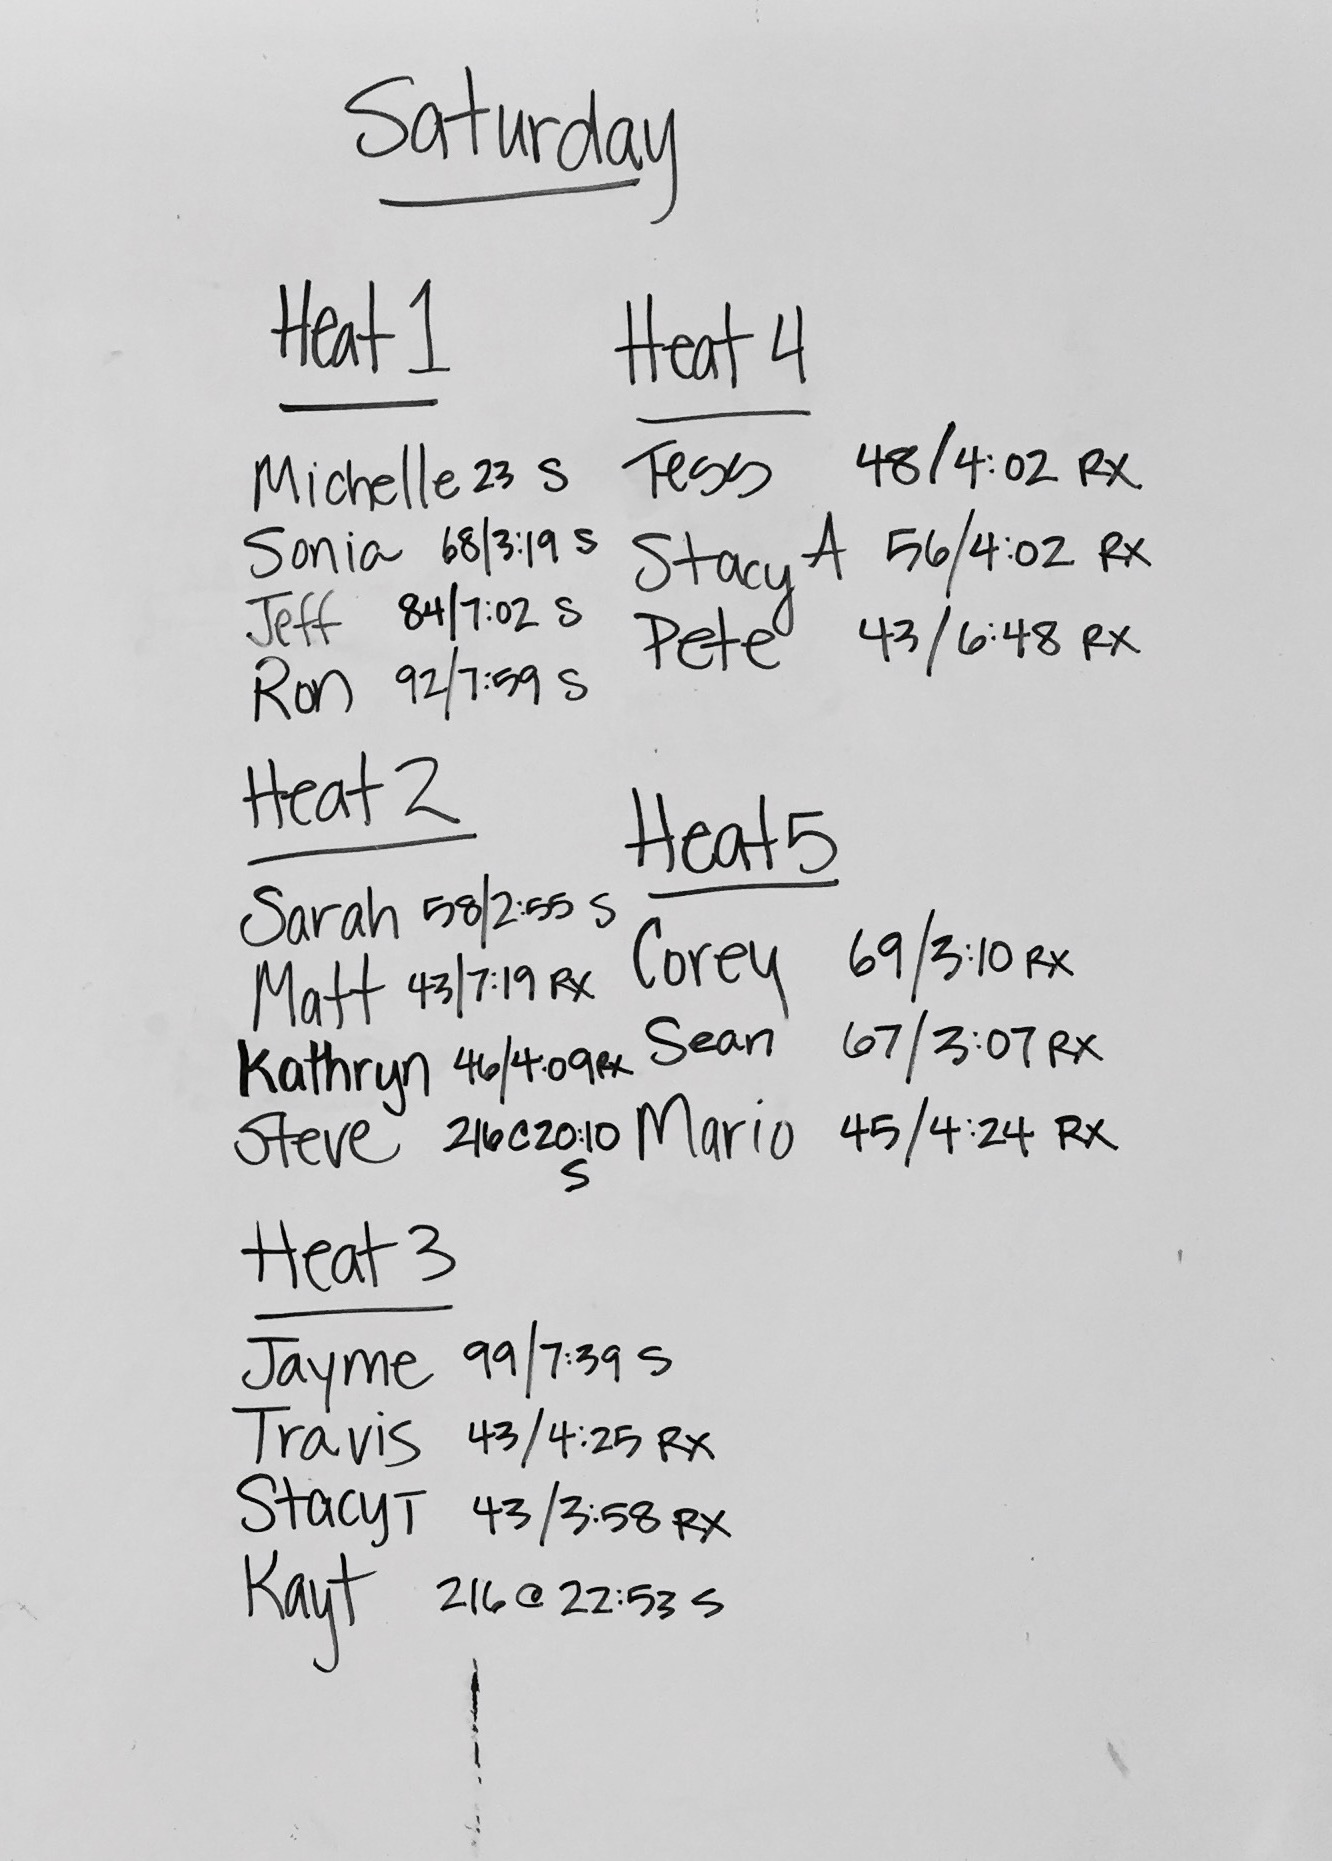 Saturday
Heat 1
Michelle 23 S
Sonia 68/3:19 S
Jeff 84/7:02 S
Ron 92/7:59 S
Heat 2
Sarah 58/2:55 S
Matt 43/7:19 RX
Kathryn 46/4:09 RX
Steve 216@20:10
S
Heat 3
Jayme 99/7:39 S
Travis 43/4:25 RX
Stacy T 43/3:58 RX
Kayt 216@22:53 S
Heat 4
Tess 48/4:02 RX
Stacy A 56/4:02 RX
Pete 43/6:48 RX
Heat 5
Corey 69/3:10 RX
Sean 67/3:07 RX
Mario 45/4:24 RX